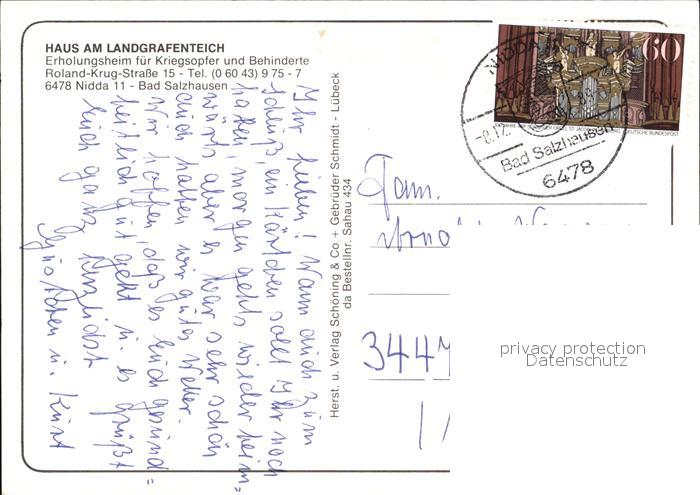 HAUS AM LANDGRAFENTEICH
Erholungsheim für Kriegsopfer und Behinderte
Roland-Krug-Straße 15 - Tel. (0 60 43) 9 75 - 7
6478 Nidda 11 - Bad Salzhausen
Ihr Lieben! Wenn auch zum
Schluß, ein Kärtchen sollt Ihr noch
haben, morgen gehts wieder heim=
wärts aber es war sehr schön
auch hatten wir gutes Wetter.
Wir hoffen, daß es Euch gesund=
heitlich gut geht u. es grüßt
Euch ganz herzlichst
u. Kurt
Herst. u. Verlag Schöning & Co + Gebrüder Schmidt - Lübeck
da Bestellnr. Sahau 434
60
DEUTSCHE BUNDESPOST
NIDDA
Bad Salzhausen
6478
Fam.
3447
privacy protection
Datenschutz